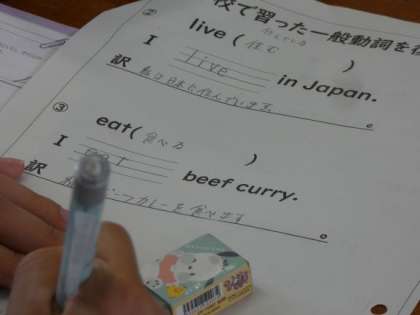 校で習った一般動詞を
②
live ( 住む )
I live in Japan.
訳 私は日本に住んでいます 。
③
eat( 食べる )
I eat beef curry.
訳 ーフカレーを食べます 。